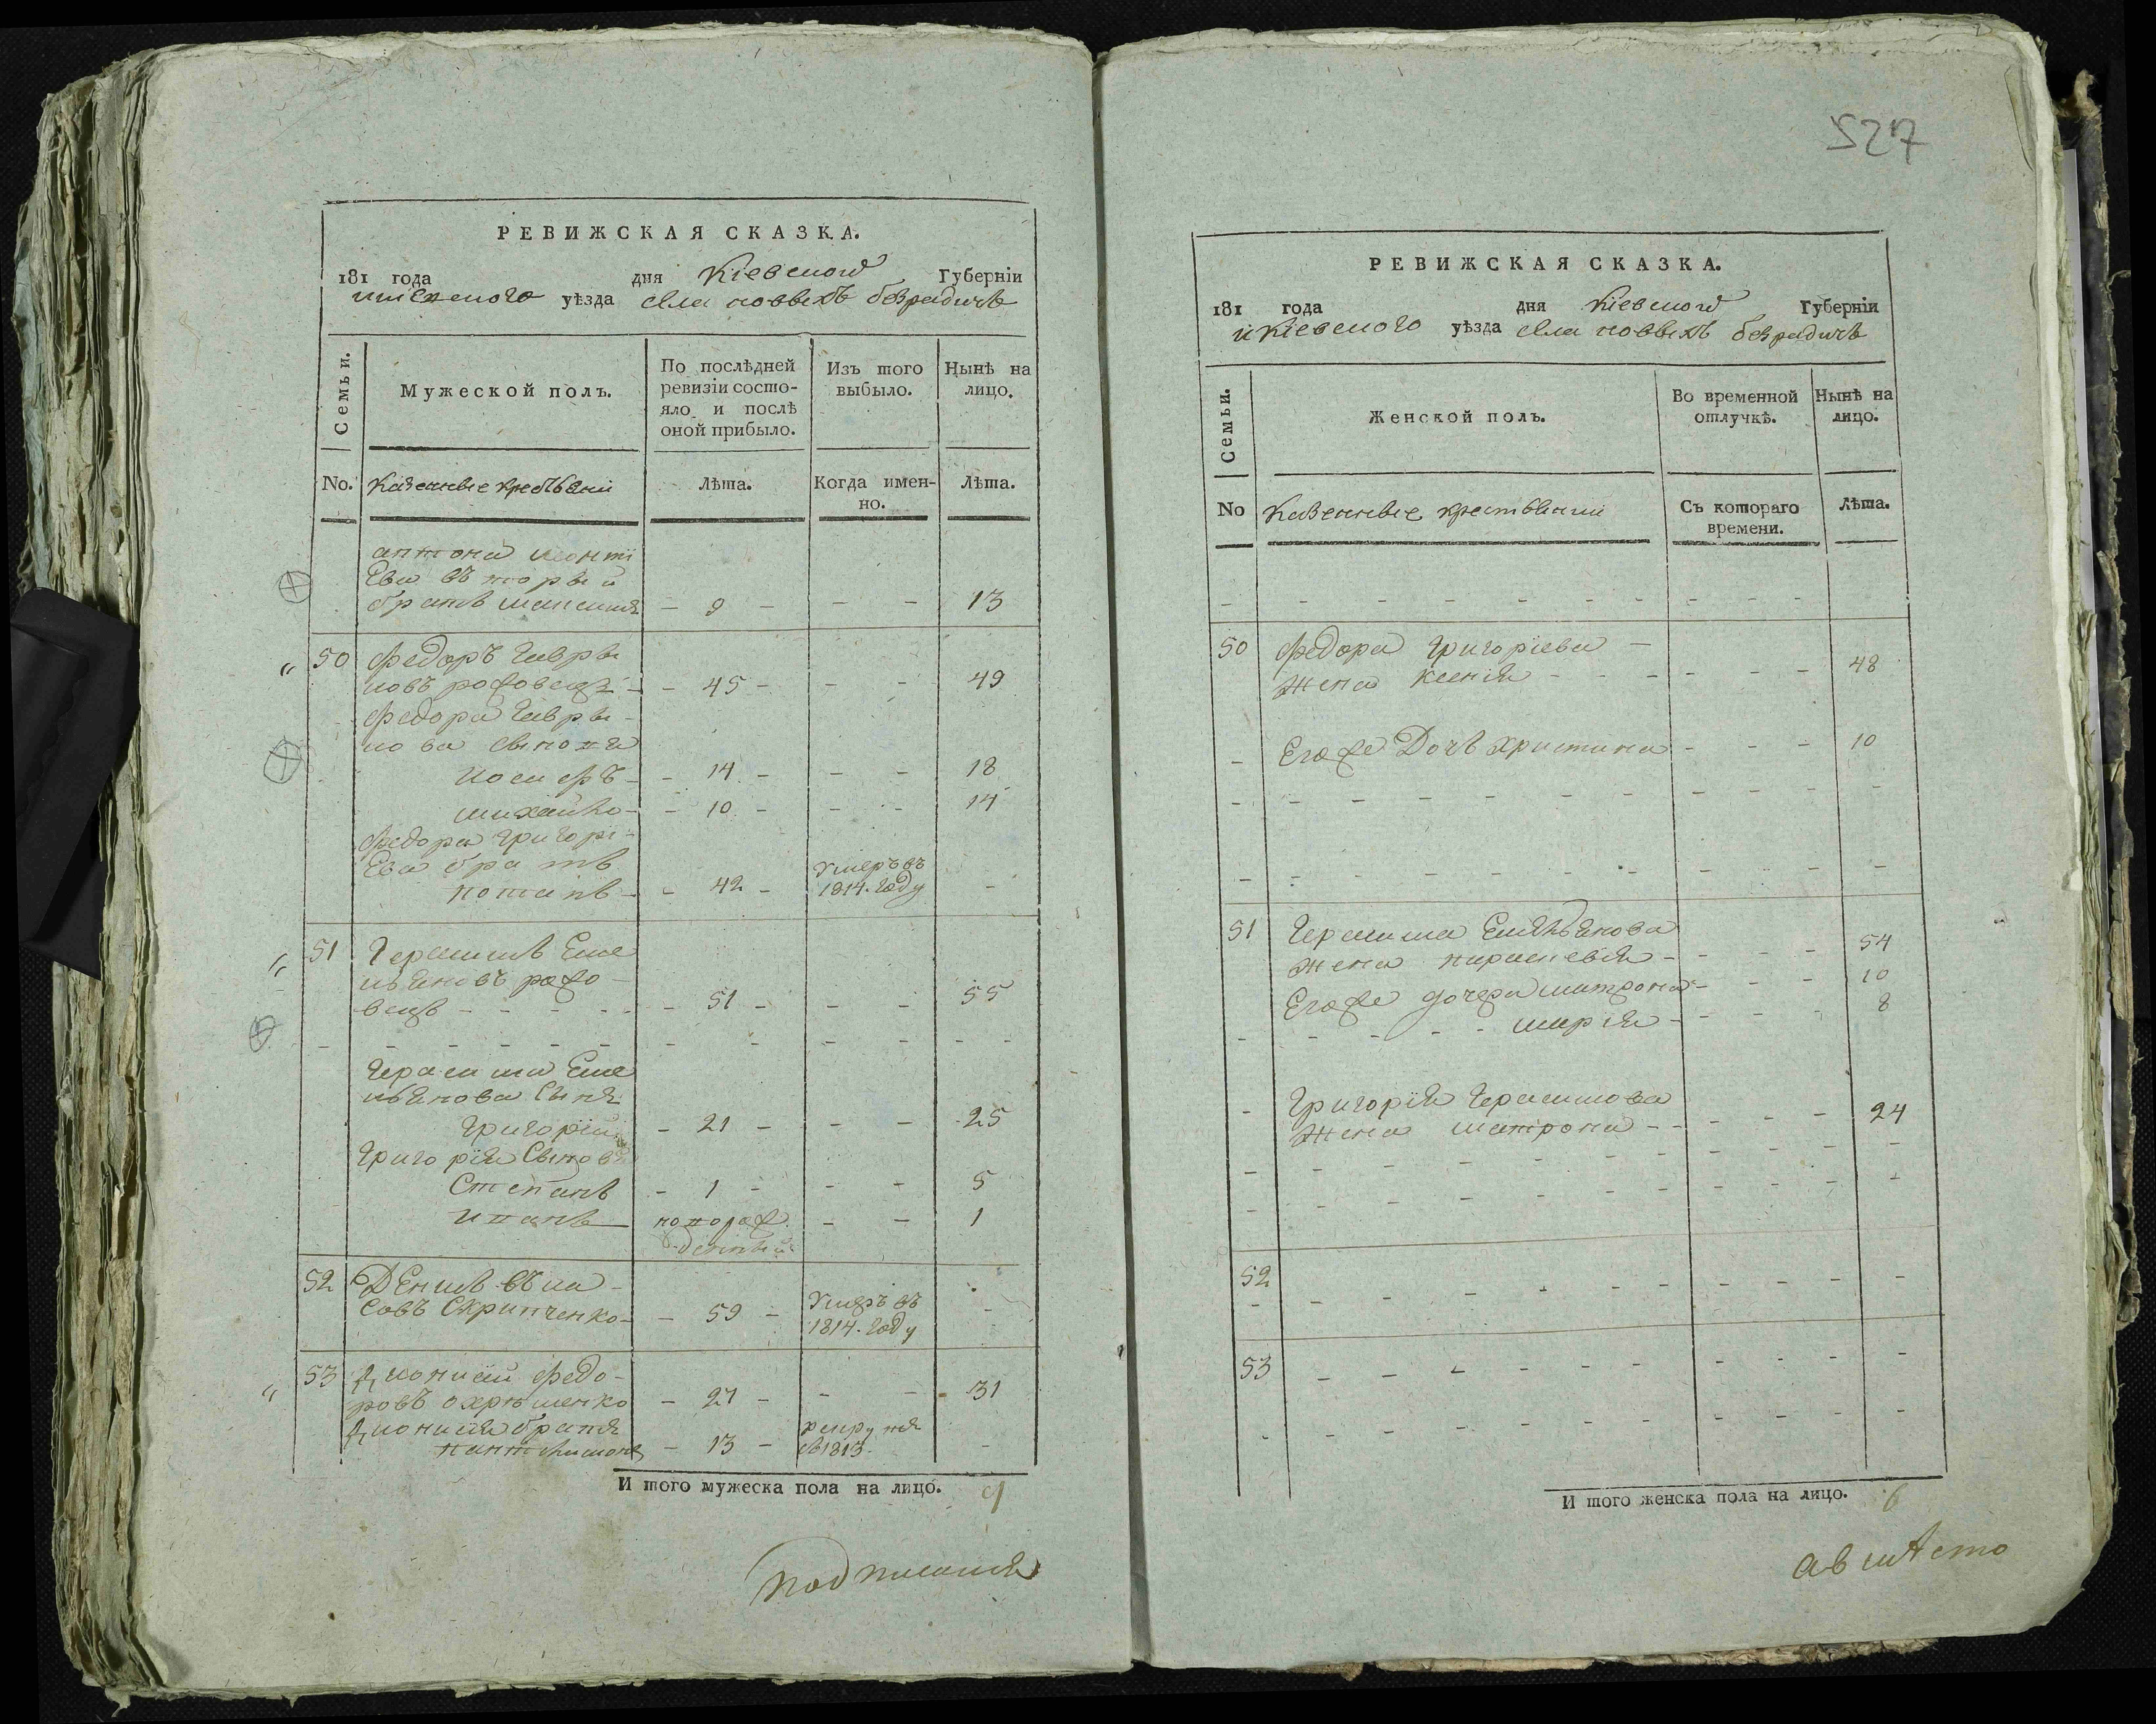 РЕВИЖСКАЯ СКАЗКА.
181 года дня Кіевской Губерніи
уѣзда села новыхъ безрадичь
Семьи.
Мужеской полъ.
По послѣдней
ревизіи состо-
яло и послѣ
оной прибыло.
Изъ того
выбыло.
Нынѣ на
лицо.
No.
Казенные
Лѣта.
Когда имен-
но.
Лѣта.
антона
Ева вторый
братъ максимъ - 9 - - - 13
50 Федоръ
- 45 - - - 49
Федора
сыновя
иосифъ - - 14 - - - 18
михайло - - 10 - - - 14
Федора григорі-
Ева братъ
потапъ - - 42 - умеръ въ
1814. году -
51 Герасимъ Еме
льяновъ рожо-
вецъ - - - - - 51 - - - 55
- - - - - - - - - - - -
Герасима Еме
льянова сынъ
григорій - 21 - - - 25
григорія сыновя
Степанъ - 1 - - - 5
иванъ новорож
денный - - 1
52 Денисъ
совъ Скрипченко - - 59 - умеръ въ
1814. году -
53 Дионисій федо-
ровъ охрѣменко - 27 - - - 31
Дионисія братъ
пантелимонъ - 13 - въ 1813. -
И того мужеска пола на лицо. 9
подписалъ
527
РЕВИЖСКАЯ СКАЗКА.
181 года дня Кіевской Губерніи
и Кіевского уѣзда села новыхъ безрадичь
Семьи.
Женской полъ.
Во временной
отлучкѣ.
Нынѣ на
лицо.
No
Казенные крестьянии
Съ котораго
времени.
Лѣта.
- - - - - - - - - -
50 Федора григоріева -
жена ксенія - - - - - - 48
- Егоже Дочь христина - - - 10
- - - - - - - - - - -
- - - - - - - - - - -
51 Герасима Емельянова
жена параскевія - - - - 54
Егоже дочери матрона - - - 10
- - - - марія - - - - 8
- Григорія Герасимова
жена матрона - - - - - 24
- - - - - - - - - - -
- - - - - - - - - - -
52
- - - - - - - - - - -
53 - - - - - - - - - -
- - - - - - - - - - -
И того женска пола на лицо. 6